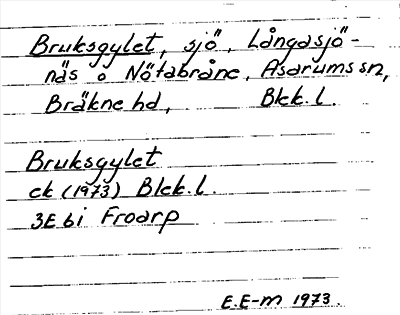 Bruksgylet, sjö, Långasjö-
näs o Nötabråne, Asarums sn,
Bräkne hd, Blek. l.
Bruksgylet
ek (1973) Blek. l.
3E 6i Froarp
E. E-m 1973.